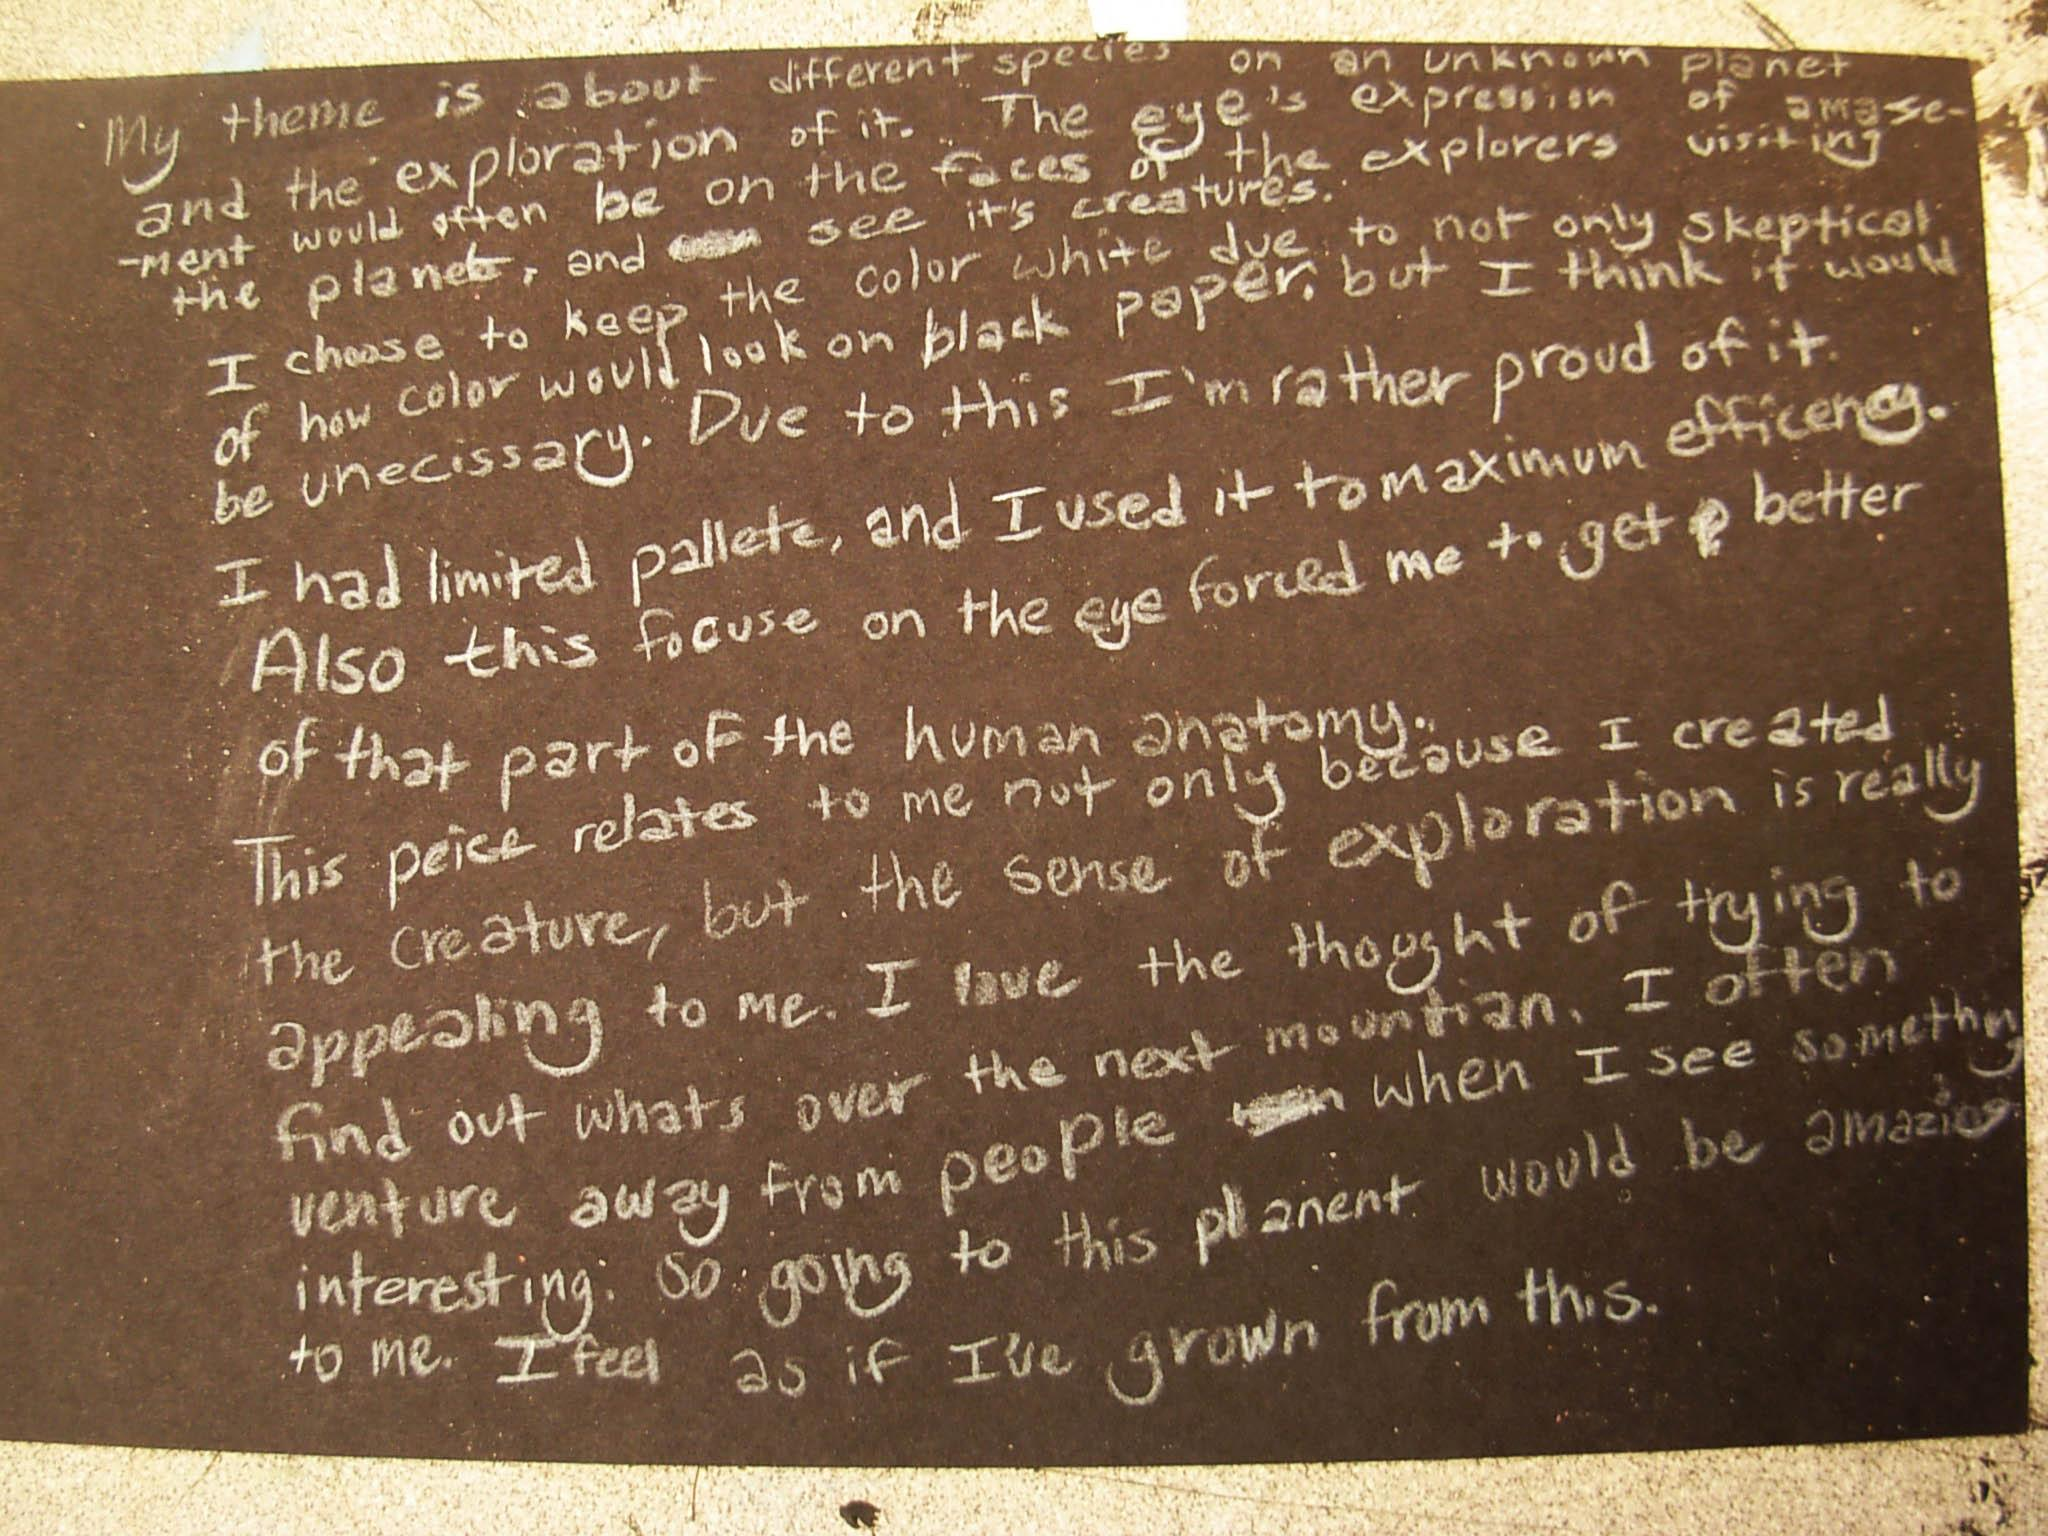 My theme is about different species on an unknown planet
and the exploration of it. The eye's expression of amase-
-ment would often be on the faces of the explorers visiting
the planet, and see it's creatures.
I choose to keep the color white due to not only skeptical
of how color would look on black paper, but I think it would
be unecissary. Due to this I'm rather proud of it.
I had limited pallete, and I used it to maximum efficency.
Also this focuse on the eye forced me to get better
of that part of the human anatomy.
This peice relates to me not only because I created
the creature, but the sense of exploration is really
appealing to me. I love the thought of trying to
find out whats over the next mountian. I often
venture away from people when I see something
interesting. So going to this planent would be amazing
to me. I feel as if I've grown from this.